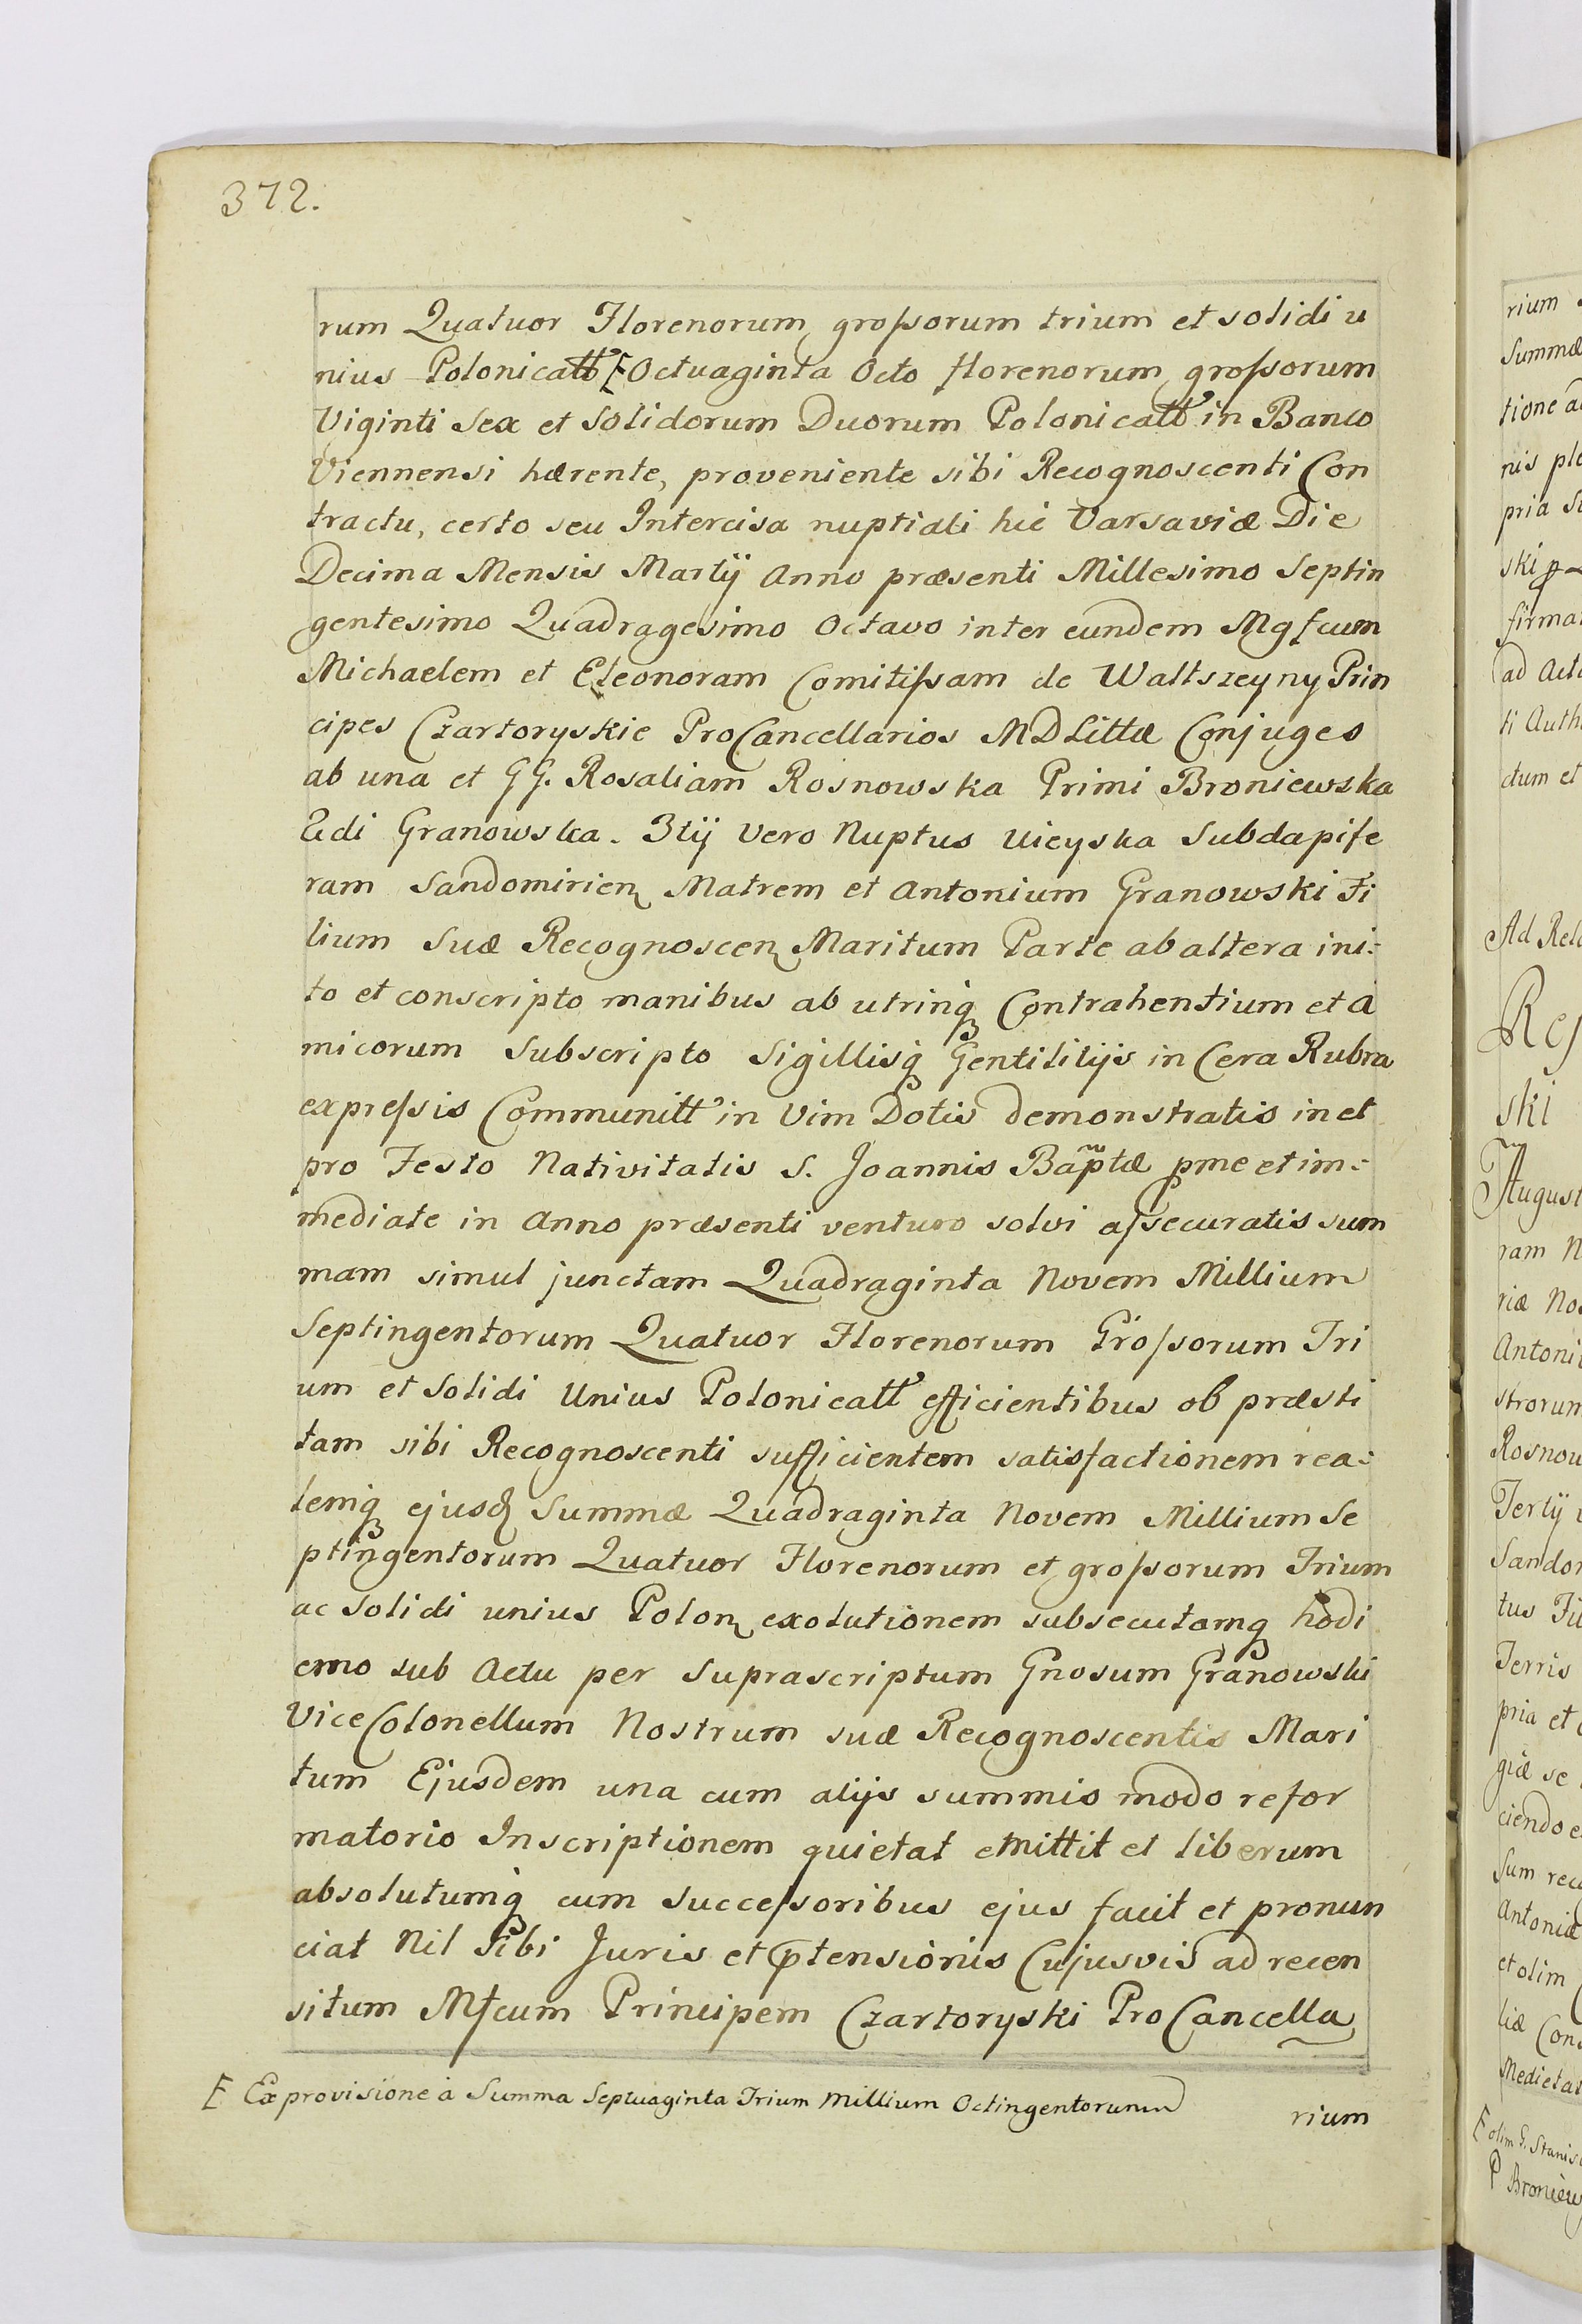 372.
rum Quatuor Florenorum grossorum trium et solidi u
nius Polonicatt E Octuaginta Octo florenorum grossorum
Viginti Sex et Solidorum Duorum Polonicatt in Banco
Viennensi hærente, proveniente sibi Recognoscenti Con
tractu, certo seu Intercisa nuptiali hic Varsaviæ Die
Decima Mensis Martij Anno præsenti Millesimo Septin
gentesimo Quadragesimo Octavo inter eundem Mgfcum
Michaelem et Eleonoram Comitissam de Waltszeyny Prin
cipes Czartoryskie ProCancellarios MDLittæ Conjuges
ab una et GG. Rosaliam Rosnowska Primi Broniewska
2di Granowska. 3tij vero Nuptus Uieyska Subdapife
ram Sandomirien Matrem et Antonium Granowski Fi
lium Suæ Recognoscen Maritum Parte ab altera ini:
to et conscripto manibus ab utrinq Contrahentium et A
micorum Subscripto Sigillisq Gentilitijs in Cera Rubra
expressis Communitt in Vim Dotis demonstratis in et
pro Festo Nativitatis S. Joannis Baptæ pme et im:
mediate in Anno præsenti venturo solvi assecuratis sum
mam simul junctam Quadraginta Novem Millium
Septingentorum Quatuor Florenorum Grossorum Tri
um et Solidi Unius Polonicatt efficientibus ob præsti
tam sibi Recognoscenti sufficientem satisfactionem rea:
lemq ejusd Summæ Quadraginta Novem Millium Se
ptingentorum Quatuor Florenorum et grossorum Trium
ac Solidi unius Polon exolutionem subsecutamq hodi
erno sub Actu per Suprascriptum Gnosum Granowski
ViceColonellum Nostrum suæ Recognoscentis Mari
tum Ejusdem una cum alijs summis modo refor
matorio Inscriptionem quietat emittit et liberum
absolutumq cum Successoribus ejus facit et pronun
ciat Nil Sibi Juris et Ptensionis Cujusvis ad recen
situm Mfcum Principem Czartoryski ProCancella
E Ex provisione à Summa Septuaginta Trium Millium Octingentorum
rium
rium
Summæ
tione
nis
pria
ski
firma
ad Act
ti Auth
ctum et
Ad Rel
Res
ski
August
ram N
riæ No
Antoni
strorum
Rosnow
Tertij
Sando
tus Fi
Terris
pria et
giæ se
ciendo e
Sum rec
Antoniæ
et olim
liæ Con
Medieta
E olim G. Stanis
P Broniew